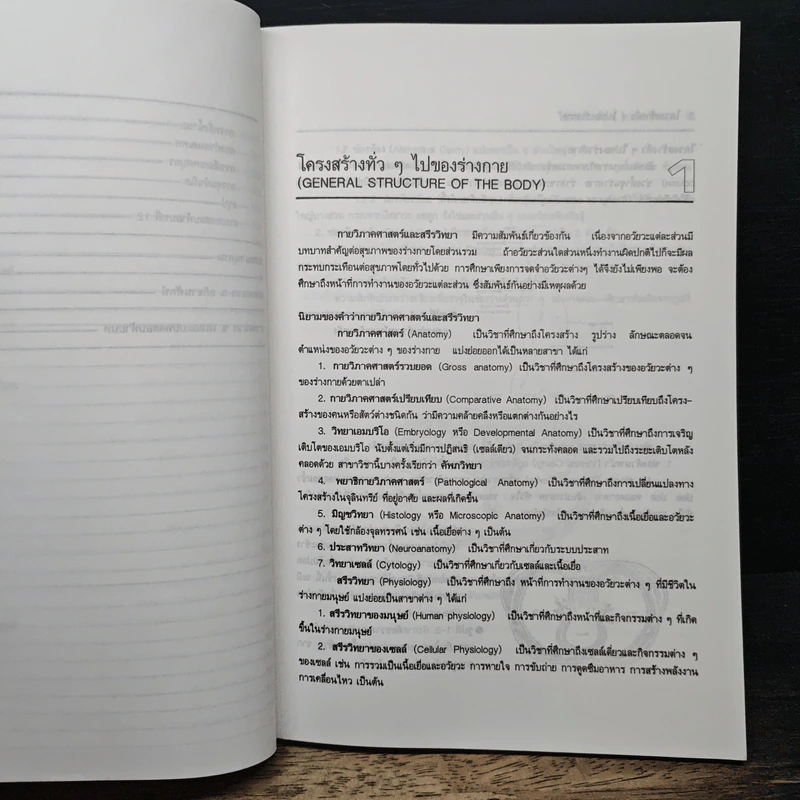 โครงสร้างทั่ว ๆ ไปของร่างกาย
(GENERAL STRUCTURE OF THE BODY)
1
กายวิภาคศาสตร์และสรีรวิทยา มีความสัมพันธ์เกี่ยวข้องกัน เนื่องจากอวัยวะแต่ละส่วนมี
บทบาทสำคัญต่อสุขภาพของร่างกายโดยส่วนรวม ถ้าอวัยวะส่วนใดส่วนหนึ่งทำงานผิดปกติไปก็จะมีผล
กระทบกระเทือนต่อสุขภาพโดยทั่วไปด้วย การศึกษาเพียงการจดจำอวัยวะต่างๆ ได้จึงยังไม่เพียงพอ จะต้อง
ศึกษาถึงหน้าที่การทำงานของอวัยวะแต่ละส่วน ซึ่งสัมพันธ์กันอย่างมีเหตุผลด้วย
นิยามของคำว่ากายวิภาคศาสตร์และสรีรวิทยา
กายวิภาคศาสตร์ (Anatomy) เป็นวิชาที่ศึกษาถึงโครงสร้าง รูปร่าง ลักษณะตลอดจน
ตำแหน่งของอวัยวะต่าง ๆ ของร่างกาย แบ่งย่อยออกได้เป็นหลายสาขา ได้แก่
1. กายวิภาคศาสตร์รวบยอด (Gross anatomy) เป็นวิชาที่ศึกษาถึงโครงสร้างของอวัยวะต่าง ๆ
ของร่างกายด้วยตาเปล่า
2. กายวิภาคศาสตร์เปรียบเทียบ (Comparative Anatomy) เป็นวิชาที่ศึกษาเปรียบเทียบถึงโครง-
สร้างของคนหรือสัตว์ต่างชนิดกัน ว่ามีความคล้ายคลึงหรือแตกต่างกันอย่างไร
3. วิทยาเอมบริโอ (Embryology หรือ Developmental Anatomy) เป็นวิชาที่ศึกษาถึงการเจริญ
เติบโตของเอมบริโอ นับตั้งแต่เริ่มมีการปฏิสนธิ (เซลล์เดียว) จนกระทั่งคลอด และรวมไปถึงระยะเติบโตหลัง
คลอดด้วย สาขาวิชานี้บางครั้งเรียกว่า คัพภวิทยา
4. พยาธิกายวิภาคศาสตร์ (Pathological Anatomy) เป็นวิชาที่ศึกษาถึงการเปลี่ยนแปลงทาง
โครงสร้างในจุลินทรีย์ ที่อยู่อาศัย และผลที่เกิดขึ้น
5. มิญชวิทยา (Histology หรือ Microscopic Anatomy) เป็นวิชาที่ศึกษาถึงเนื้อเยื่อและอวัยวะ
ต่าง ๆ โดยใช้กล้องจุลทรรศน์ เช่น เนื้อเยื่อต่าง ๆ เป็นต้น
6. ประสาทวิทยา (Neuroanatomy) เป็นวิชาที่ศึกษาเกี่ยวกับระบบประสาท
7. วิทยาเซลล์ (Cytology) เป็นวิชาที่ศึกษาเกี่ยวกับเซลล์และเนื้อเยื่อ
สรีรวิทยา (Physiology) เป็นวิชาที่ศึกษาถึง หน้าที่การทำงานของอวัยวะต่าง ๆ ที่มีชีวิตใน
ร่างกายมนุษย์ แบ่งย่อยเป็นสาขาต่าง ๆ ได้แก่
1. สรีรวิทยาของมนุษย์ (Human physiology) เป็นวิชาที่ศึกษาถึงหน้าที่และกิจกรรมต่าง ๆ ที่เกิด
ขึ้นในร่างกายมนุษย์
2. สรีรวิทยาของเซลล์ (Cellular Physiology) เป็นวิชาที่ศึกษาถึงเซลล์เดี่ยวและกิจกรรมต่าง ๆ
ของเซลล์ เช่น การรวมเป็นเนื้อเยื่อและอวัยวะ การหายใจ การขับถ่าย การดูดซึมอาหาร การสร้างพลังงาน
การเคลื่อนไหว เป็นต้น